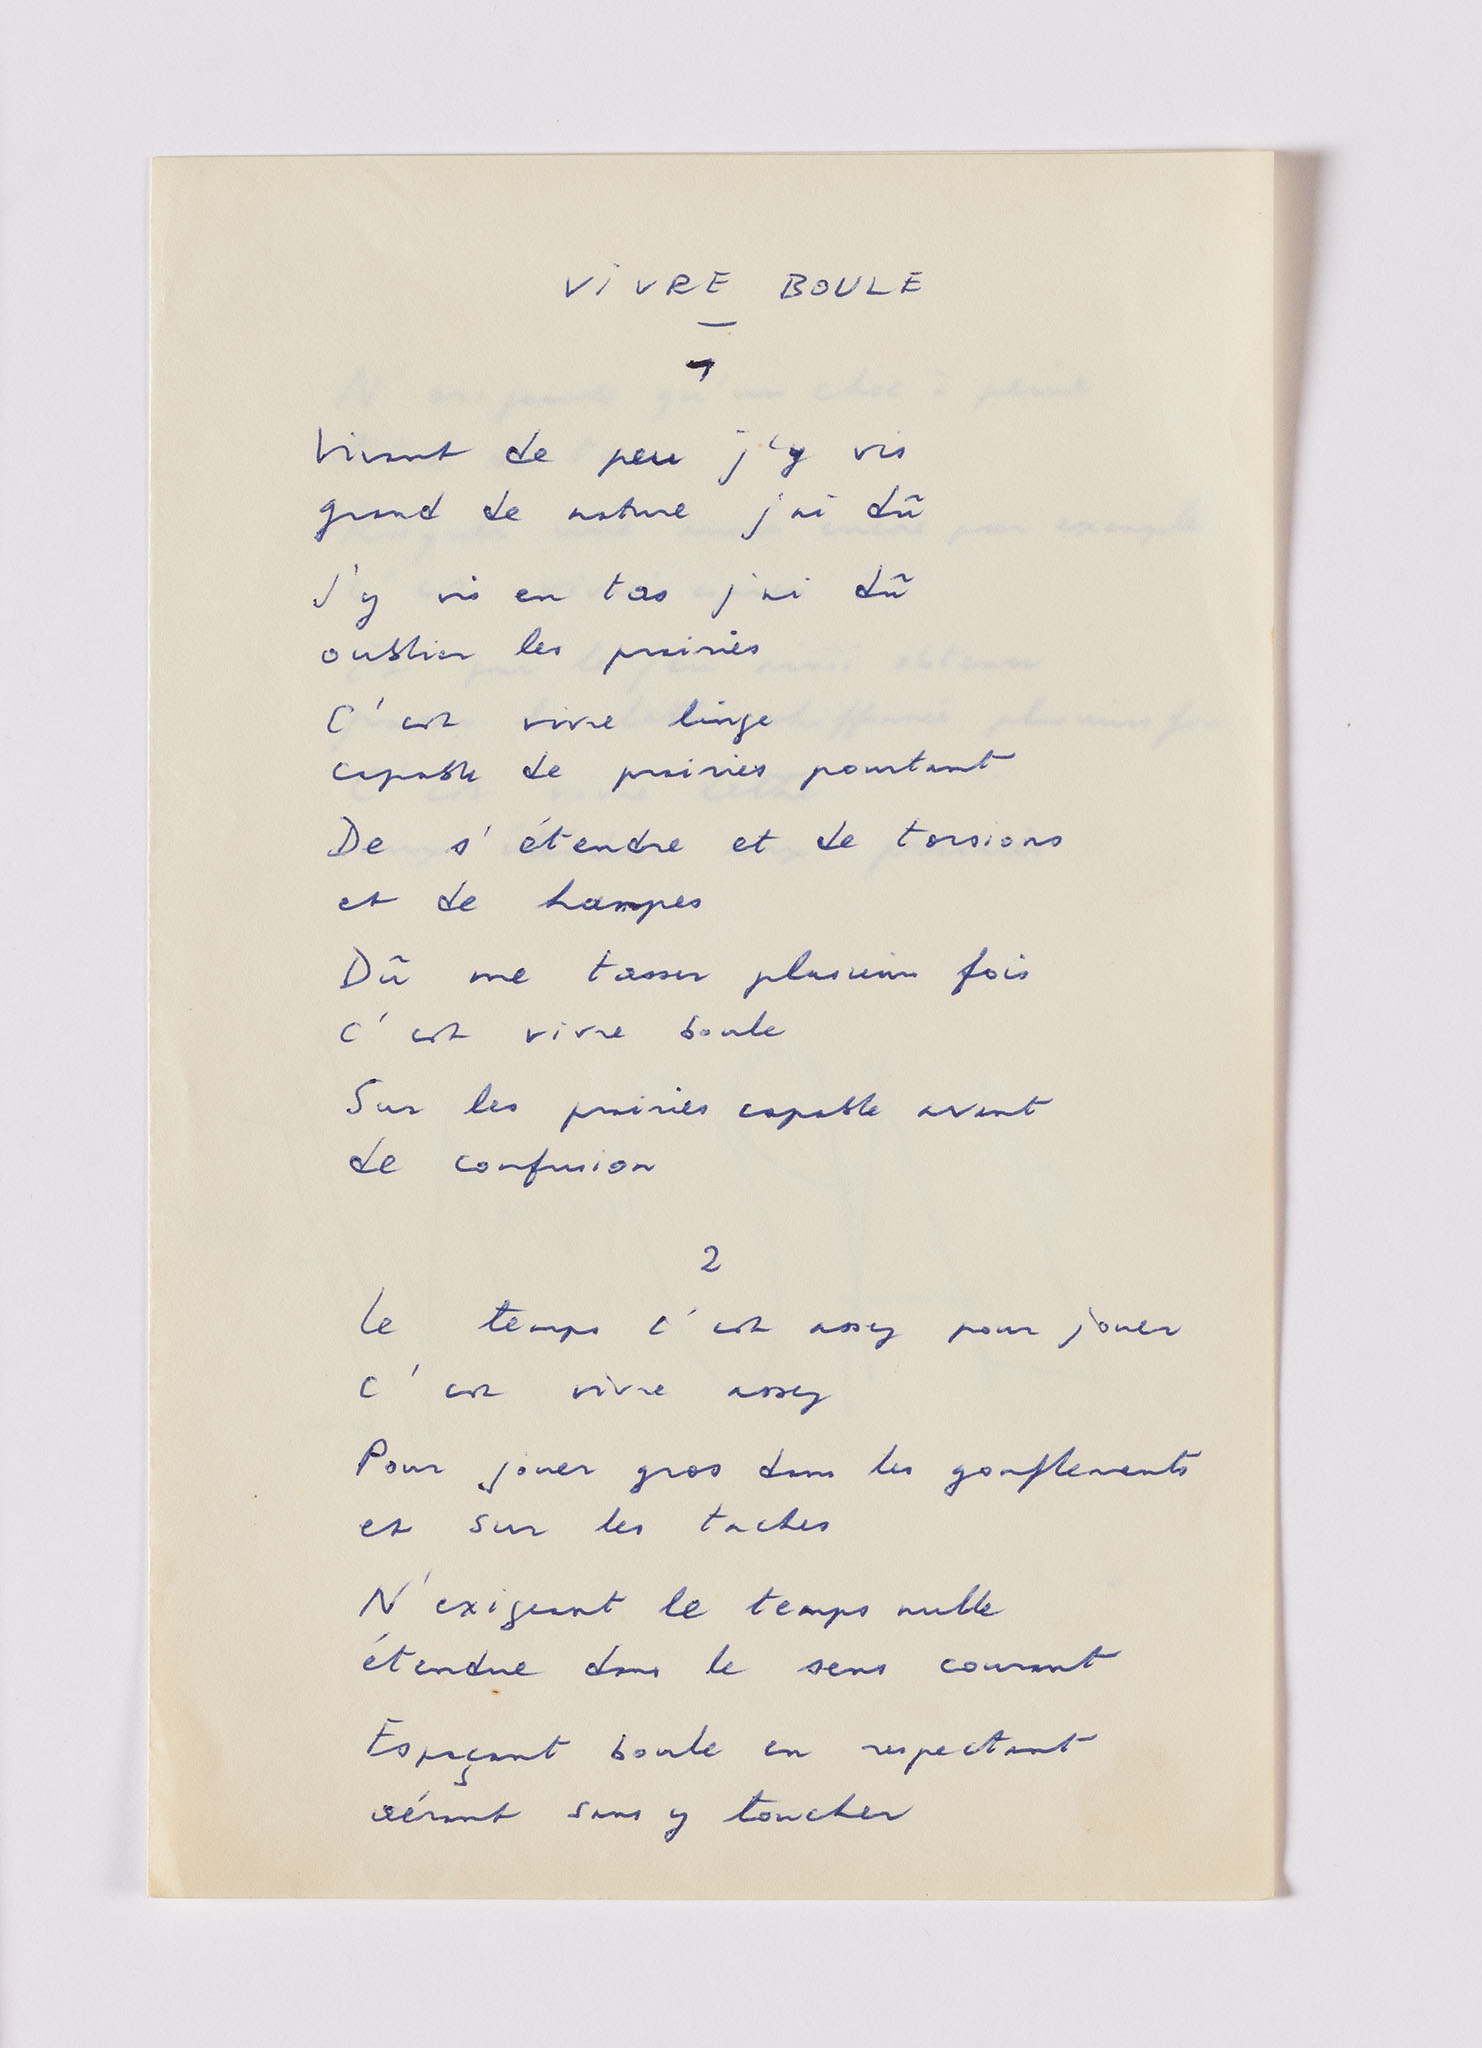 VIVRE BOULE
1
Vivant de peu j'y vis
grand de nature j'ai dû
J'y vis en tas j'ai dû
oublier les prairies
C'est vivre linge
capable de prairies pourtant
De s'étendre et de torsions
et de hampes
Dû me tasser plusieurs fois
C'est vivre boule
Sur les prairies capable avant
de confusion
2
Le temps c'est assez pour jouer
C'est vivre assez
Pour jouer gros dans les gonflements
et sur les taches
N'exigeant le temps nulle
étendue dans le sens courant
Espaçant boule en respectant
aérant sans y toucher